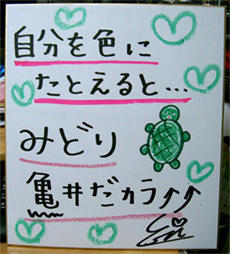 自分を色に
たとえると…
みどり
亀井だカラ↑↑